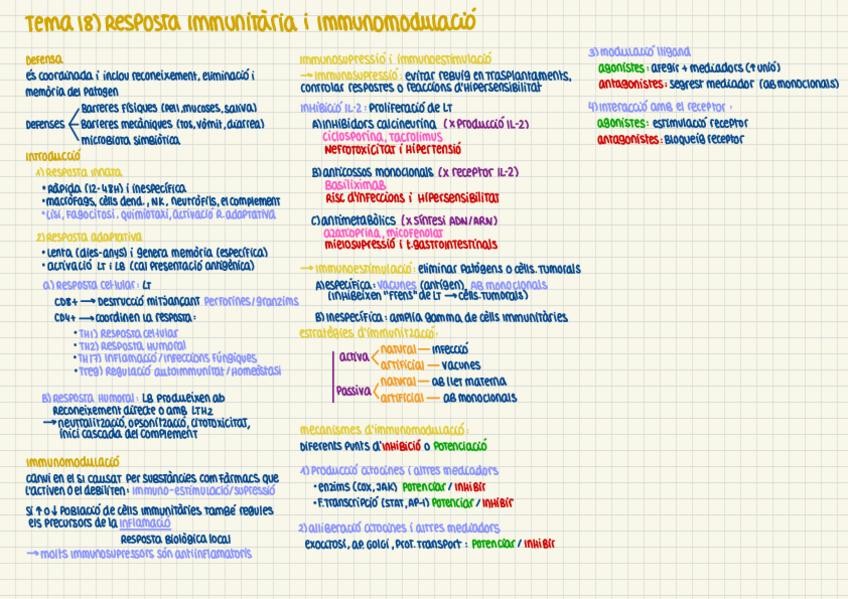 Tema 18) Resposta immunitària i immunomodulació
Defensa
és coordinada i inclou reconeixement, eliminació i
memòria del patogen
Defenses
Barreres físiques (pell, mucoses, saliva)
Barreres mecàniques (tos, vòmit, diarrea)
microbiota simbiòtica
Introducció
1) Resposta innata
• Ràpida (12-48H) i inespecífica
• macròfags, cèls dend., NK, neutròfils, el complement
• Lisi, fagocitosi, quimiotaxi, activació R. adaptativa
2) Resposta adaptativa
• Lenta (dies-anys) i genera memòria (específica)
• activació LT i LB (cal presentació antigènica)
a) Resposta cel·lular: LT
CD8+ → Destrucció mitjançant perforines/granzims
CD4+ → coordinen la resposta:
• TH1) Resposta cel·lular
• TH2) Resposta humoral
• TH17) Inflamació/infeccions fúngiques
• Treg) Regulació autoimmunitat/Homeòstasi
B) Resposta humoral: LB produeixen ab
Reconeixement directe o amb LTH2
→ neutralització, opsonització, citotoxicitat,
inici cascada del complement
Immunomodulació
canvi en el si causat per substàncies com fàrmacs que
l'activen o el debiliten: immuno-estimulació/supressió
Si ↑ o ↓ població de cèls immunitàries també regules
els precursors de la inflamació
Resposta biològica local
→ molts immunosupressors són antiinflamatoris
Immunosupressió i immunoestimulació
→ Immunosupressió: evitar rebuig en trasplantaments,
controlar respostes o reaccions d'hipersensibilitat
Inhibició IL-2: Proliferació de LT
A) Inhibidors calcineurina (x producció IL-2)
ciclosporina, tacrolimus
Nefrotoxicitat i hipertensió
B) anticossos monoclonals (x receptor IL-2)
Basiliximab
Risc d'infeccions i hipersensibilitat
C) antimetabòlics (x síntesi ADN/ARN)
azatioprina, micofenolat
mielosupressió i t. gastrointestinals
→ Immunoestimulació: eliminar patògens o cèls. tumorals
A) específica: vacunes (antigen), AB monoclonals
(inhibeixen "frens" de LT → cèls. tumorals)
B) Inespecífica: amplia gamma de cèls immunitàries
estratègies d'immunització:
activa
natural — infecció
artificial — vacunes
Passiva
natural — AB llet materna
artificial — AB monoclonals
mecanismes d'immunomodulació:
Diferents punts d'inhibició o potenciació
1) Producció citocines i altres mediadors
• enzims (COX, JAK) Potenciar / Inhibir
• F. Transcripció (STAT, AP-1) Potenciar / Inhibir
2) alliberació citocines i altres mediadors
exocitosi, ap. Golgi, prot. transport: Potenciar / Inhibir
3) modulació lligand
agonistes: afegir + mediadors (↑ unió)
antagonistes: segrest mediador (AB monoclonals)
4) Interacció amb el receptor:
agonistes: estimulació receptor
antagonistes: Bloqueig receptor